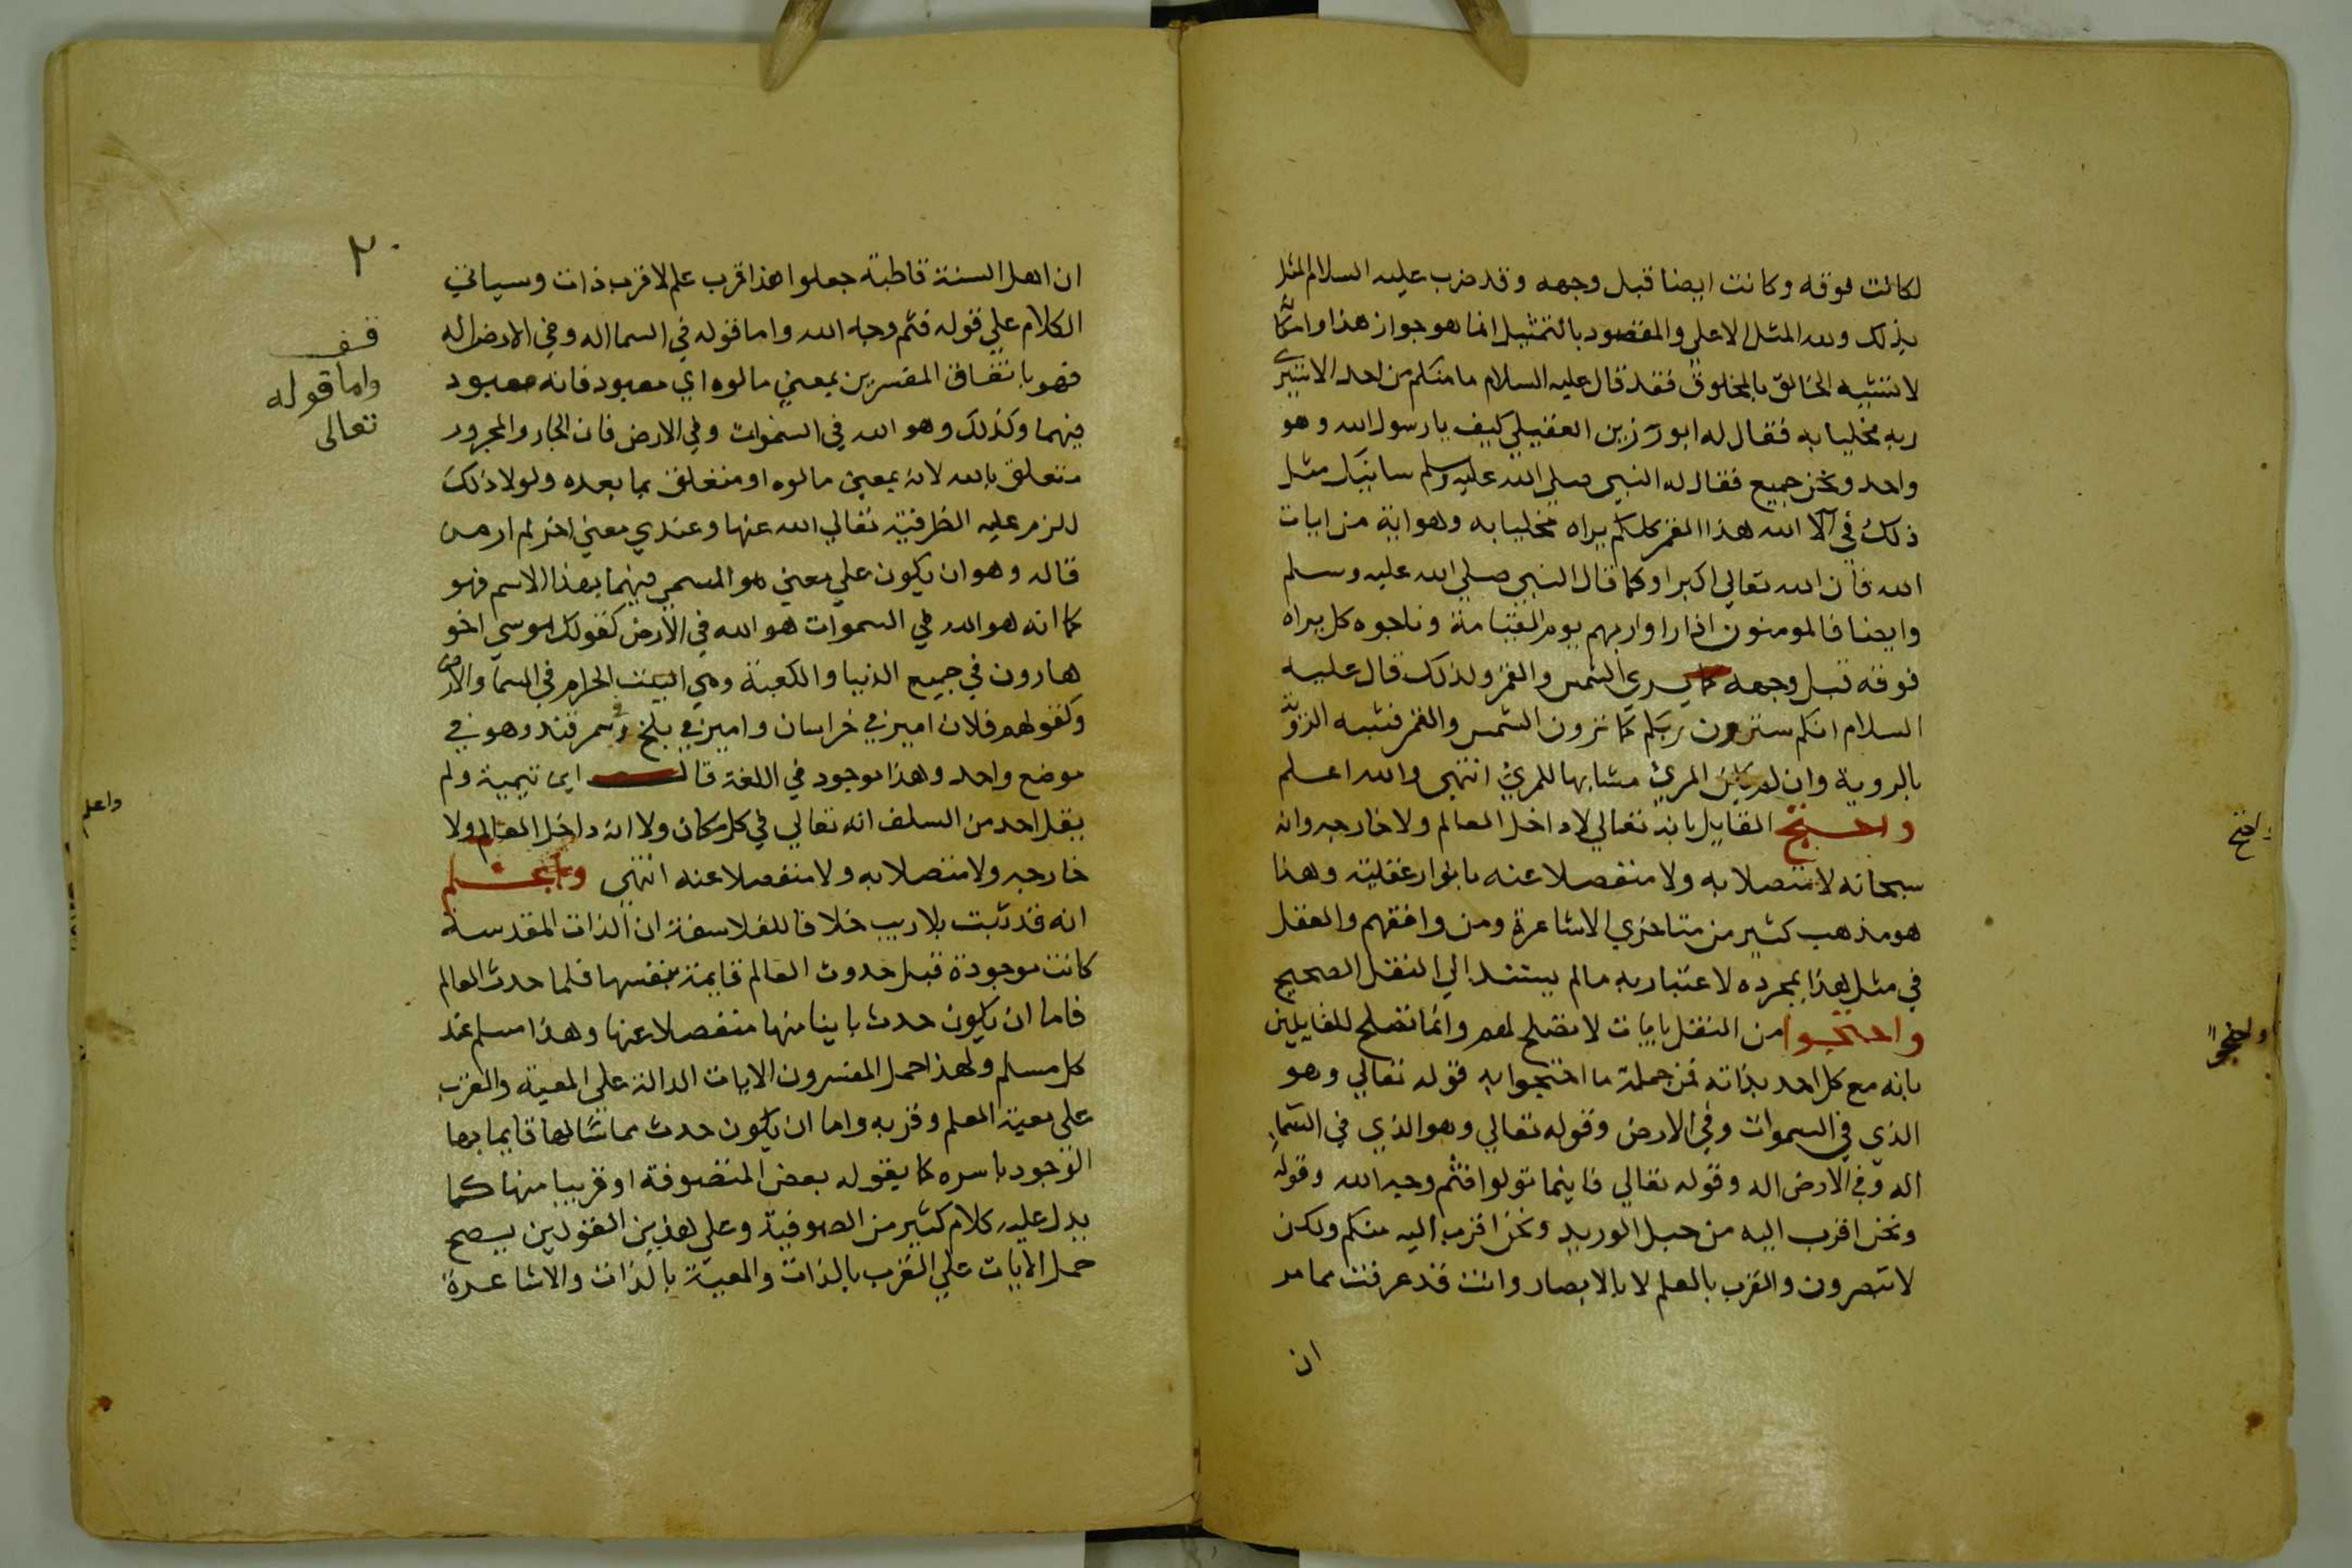 لكانت فوقه وكانت ايضا قبل وجهه وقد ضرب عليه السلام المثل
بذلك ولله المثل الاعلي والمقصود بالتمثيل انما هو جواز هذا وامكا
لا تشبيه الخالق بالمخلوق فقد قال عليه السلام ما منكم من احد الا سيرى
ربه مخليا به فقال له ابو رزين العقيلي كيف يا رسول الله وهو
واحد ونحن جميع فقال له النبي صلي الله عليه وسلم سانبئك مثل
ذلك في آلا الله هذا القمر كلكم يراه مخليا به وهو اية من ايات
الله فان الله تعالي اكبر او كما قال النبي صلي الله عليه وسلم
وايضا فالمومنون اذا راوا ربهم يوم القيامة وناجوه كل يراه
فوقه قبل وجهه كما يري الشمس والقمر ولذلك قال عليه
السلام انكم سترون ربكم كما ترون الشمس والقمر فشبه الروية
بالروية وان لم يكن المري مشابها للمري انتهى والله اعلم
واحتج القايل بانه تعالي لا داخل العالم ولا خارجه وانه
سبحانه لا متصلا به ولا منفصلا عنه بانوار عقلية وهذا
هو مذهب كثير من متاخري الاشاعرة ومن وافقهم والعقل
في مثل هذا بمجرده لا عتبار به مالم يستند الي النقل الصحيح
واحتجوا من النقل بايات لا تصلح لهم وانما تصلح للقايلين
بانه مع كل احد بذاته فمن جملة ما احتجوا به قوله تعالي وهو
الذي في السموات وفي الارض وقوله تعالي وهو الذي في السما
اله وفي الارض اله وقوله تعالي فاينما تولوا فثم وجه الله وقوله
ونحن اقرب اليه من حبل الوريد ونحن اقرب اليه منكم ولكن
لا تبصرون والقرب بالعلم لا بالابصار وانت قد عرفت مما مر
ان
واحتج
واحتجوا
٢٠
ان اهل السنة قاطبة جعلوا هذا قرب علم لا قرب ذات وسياتي
الكلام علي قوله فثم وجه الله واما قوله في السما اله وفي الارض اله
فهو باتفاق المفسرين بمعني مالوه اي معبود فانه معبود
فيهما وكذلك وهو الله في السموات وفي الارض فان الجار والمجرور
متعلق بالله لانه بمعني مالوه او متعلق بما بعده ولولا ذلك
للزم عليه الظرفية تعالي الله عنها وعندي معني اخر لم ار من
قاله وهو ان يكون علي معني هو المسمى فيهما بهذا الاسم فهو
كما انه هو الله في السموات هو الله في الارض كقولك موسي اخو
هارون في جميع الدنيا والكعبة وهي البيت الحرام في السما والارض
وكقولهم فلان امير في خراسان وامير في بلخ وسمرقند وهو في
موضع واحد وهذا موجود في اللغة قال ابن تيمية ولم
يقل احد من السلف انه تعالي في كل مكان ولا انه داخل العالم ولا
خارجه ولا متصلا به ولا منفصلا عنه انتهي واعلم
انه قد ثبت بلا ريب خلافا للفلاسفة ان الذات المقدسة
كانت موجودة قبل حدوث العالم قايمة بنفسها فلما حدث العالم
فاما ان يكون حدث باينا منها منفصلا عنها وهذا مسلم عند
كل مسلم ولهذا حمل المفسرون الايات الدالة على المعية والقرب
على معية العلم وقربه واما ان يكون حدث مماسا لها قايما بها
الوجود باسره كما يقوله بعض المتصوفة او قريبا منها كما
يدل عليه كلام كثير من الصوفية وعلي هذين القولين يصح
حمل الايات علي القرب بالذات والمعية بالذات والاشاعرة
قف
واما قوله
تعالى
واعلم